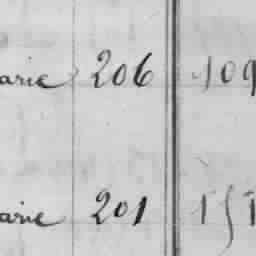 arie 206 109
arie 201 151